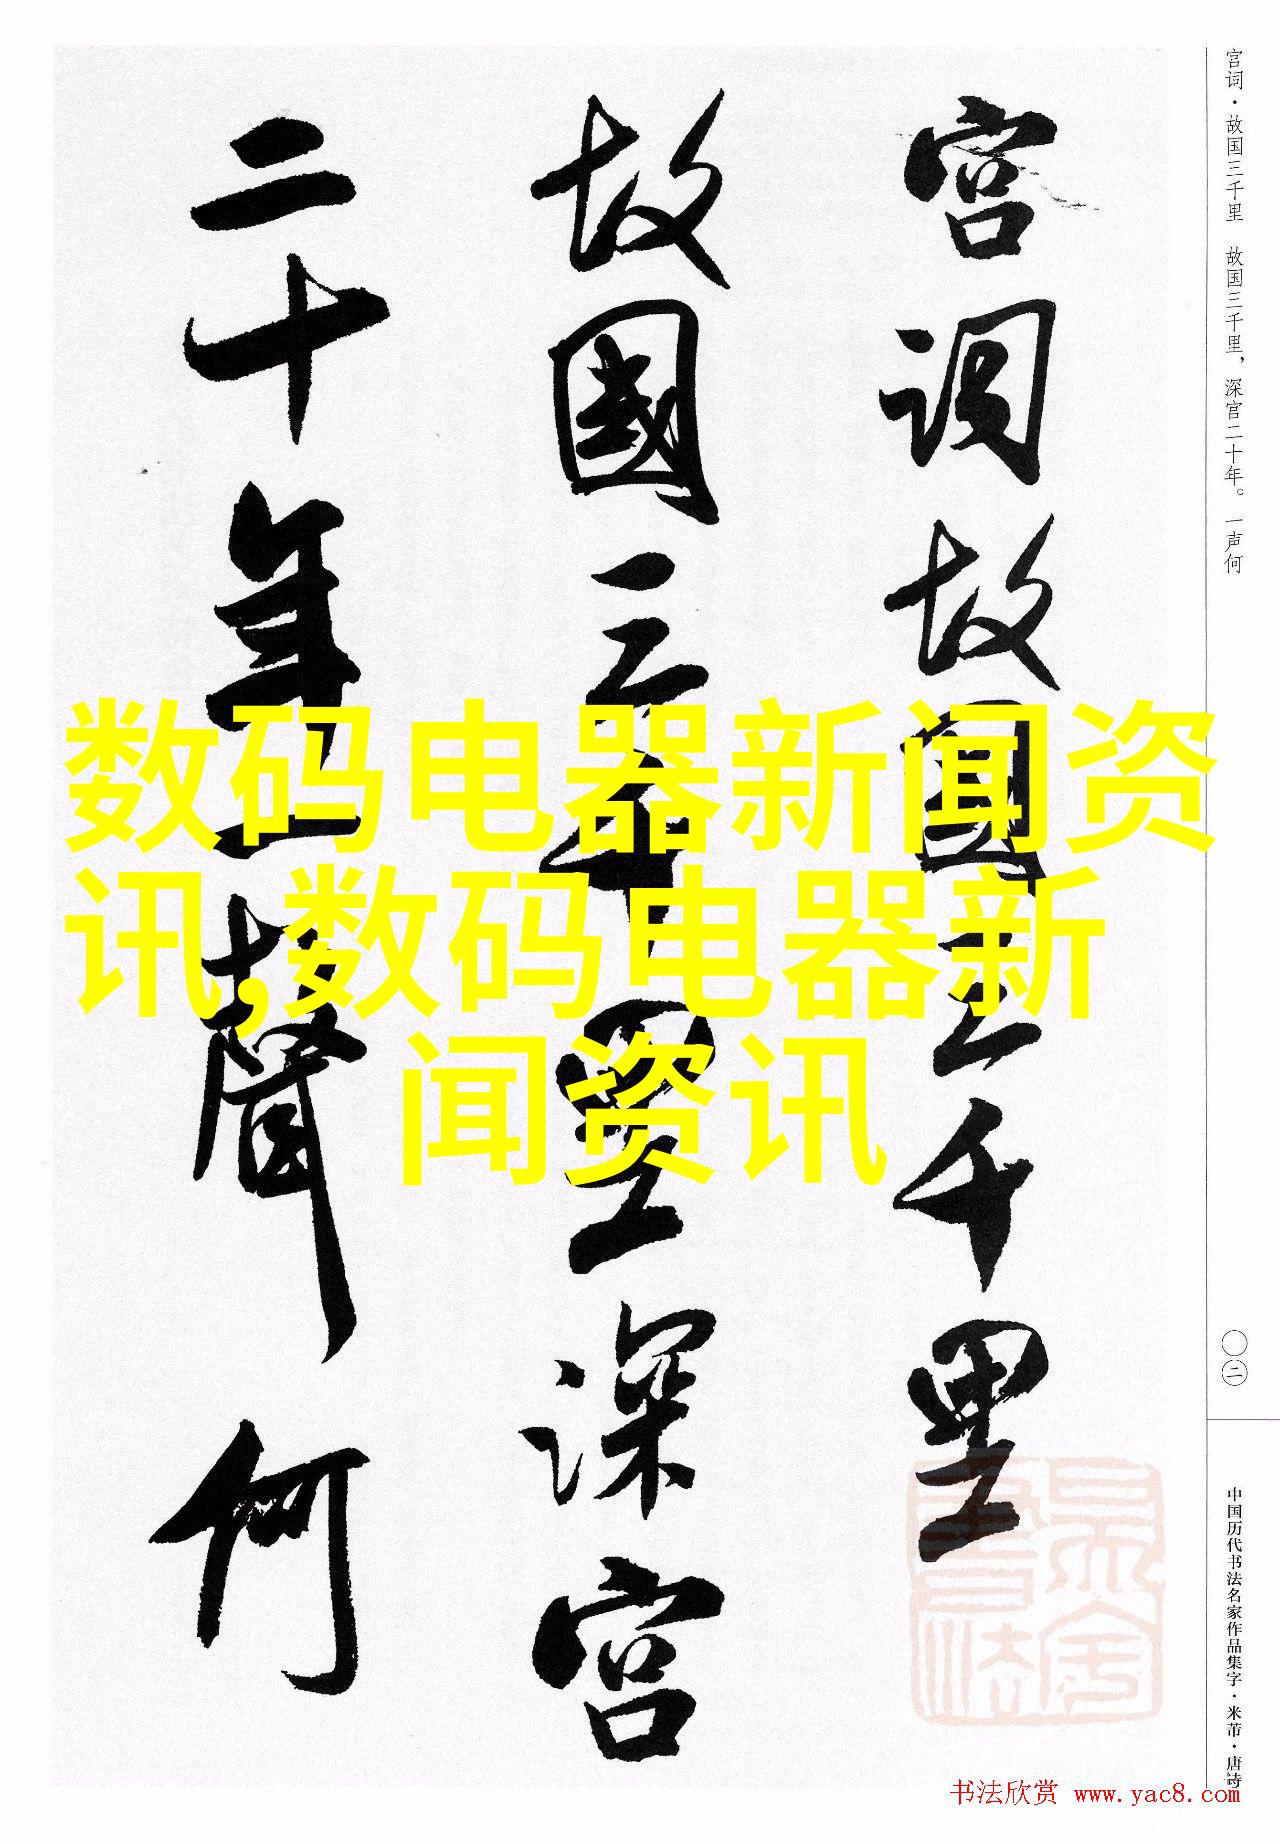 宫词故国三千里
故國三千里深宫
二十年一聲何
宫词·故国三千里 故国三千里，深宫二十年。一声何
〇二
中国历代书法名家作品集字·米芾·唐诗
数码电器新闻资
讯,数码电器新
闻资讯
书法欣赏 www.yac8.com